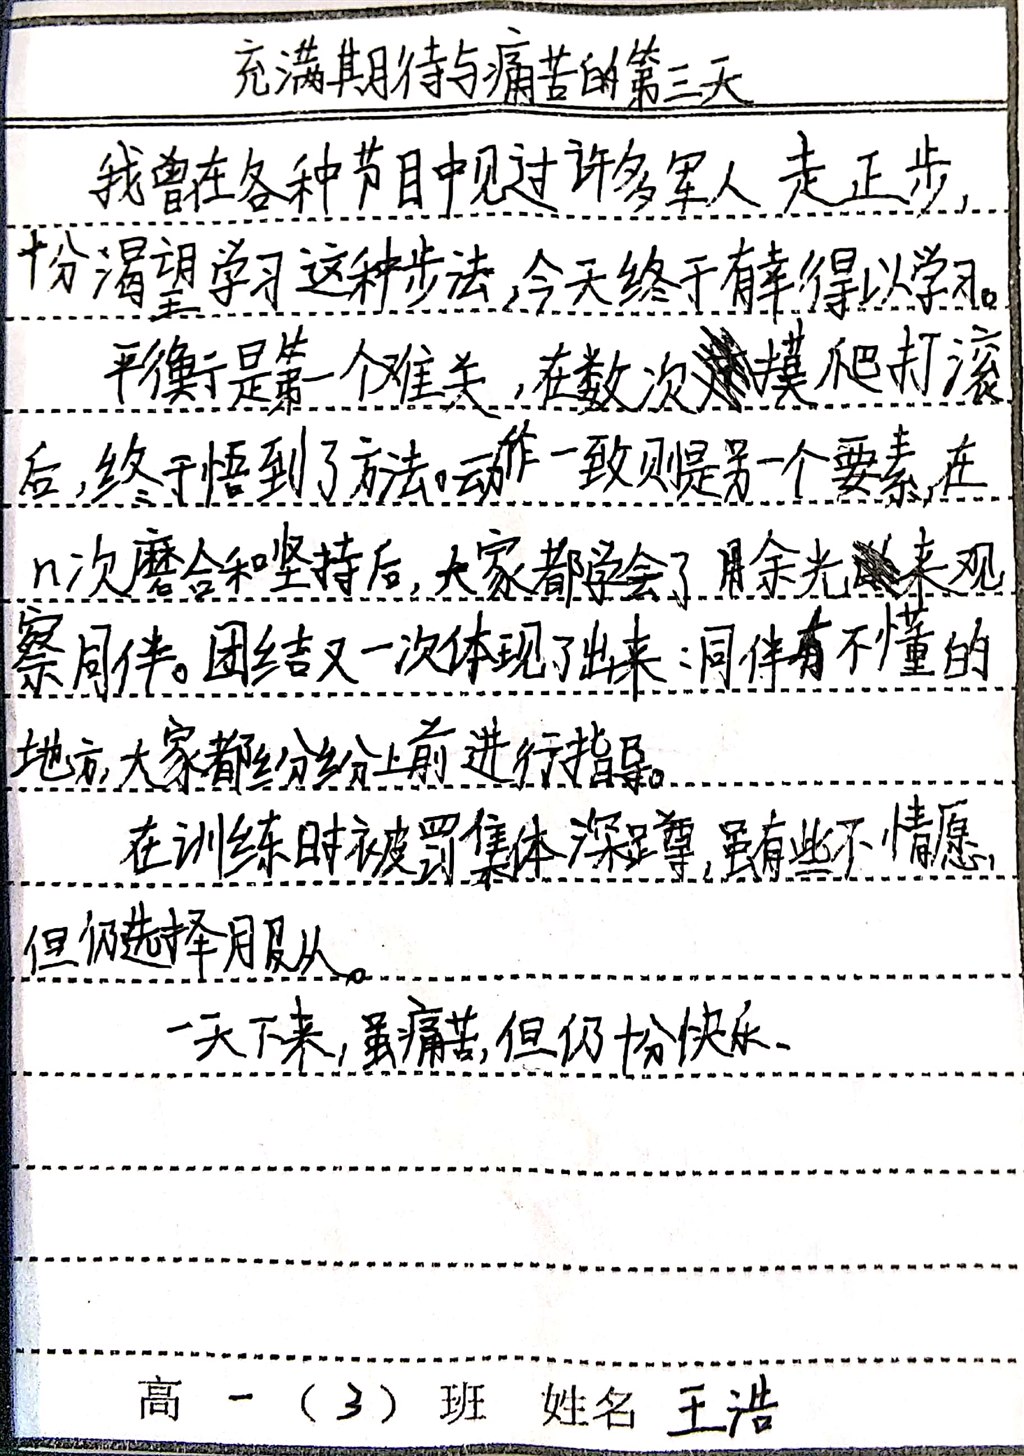 充满期待与痛苦的第三天
我曾在各种节目中见过许多军人走正步,
十分渴望学习这种步法,今天终于有幸得以学习。
平衡是第一个难关,在数次摸爬打滚
后,终于悟到了方法。动作一致则是另一个要素,在
n次磨合和坚持后,大家都学会了用余光来观
察同伴。团结又一次体现了出来:同伴有不懂的
地方,大家都纷纷上前进行指导。
在训练时被罚集体深蹲,虽有些不情愿,
但仍选择服从。
一天下来,虽痛苦,但仍十分快乐.
高一(3)班 姓名 王浩